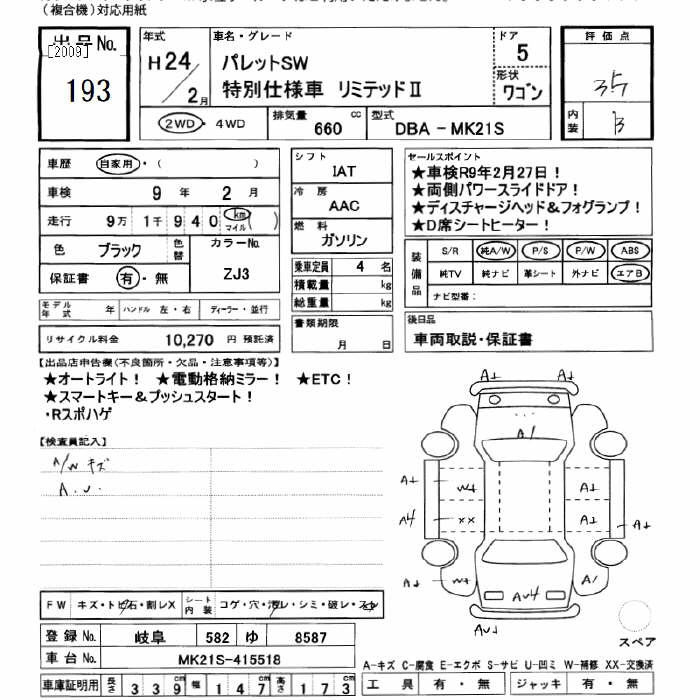 （複合機）対応用紙
出品No.
[2009]
193
年式
H24/2月
車名・グレード
パレットSW
特別仕様車 リミテッドⅡ
ドア
5
形状
ワゴン
評価点
3.5
内装
B
2WD・4WD
排気量 660 cc
型式 DBA－MK21S
車歴 自家用・( )
車検 9年 2月
走行 9万1千940 km マイル( )
色 ブラック 色替 カラーNo.
保証書 有・無 ZJ3
シフト
IAT
冷房
AAC
燃料
ガソリン
乗車定員 4名
積載量 kg
総重量 kg
セールスポイント
★車検R9年2月27日！
★両側パワースライドドア！
★ディスチャージヘッド＆フォグランプ！
★D席シートヒーター！
装備品
S/R 純A/W P/S P/W ABS
純TV 純ナビ 革シート 外ナビ エアB
ナビ型番：
モデル年式 年 ハンドル 左・右 ディーラー・並行
リサイクル料金 10,270 円 預託済
書類期限
月 日
後日品
車両取説・保証書
【出品店申告欄（不良箇所・欠品・注意事項等）】
★オートライト！ ★電動格納ミラー！ ★ETC！
★スマートキー＆プッシュスタート！
・Rスポハゲ
【検査員記入】
A/W キズ
A.U.
A1
A1
A1
A1
W1
A1
A4
XX
A1
A1
W1
A1
AU4
AU1
スペア
FW キズ・トビ石・割レX シート内装 コゲ・穴・汚レ・シミ・破レ・スレ
登録No. 岐阜 582 ゆ 8587
車台No. MK21S-415518
車庫証明用 長さ 339 幅 147 高さ 173
A-キズ C-腐食 E-エクボ S-サビ U-凹ミ W-補修 XX-交換済
工具 有・無 ジャッキ 有・無